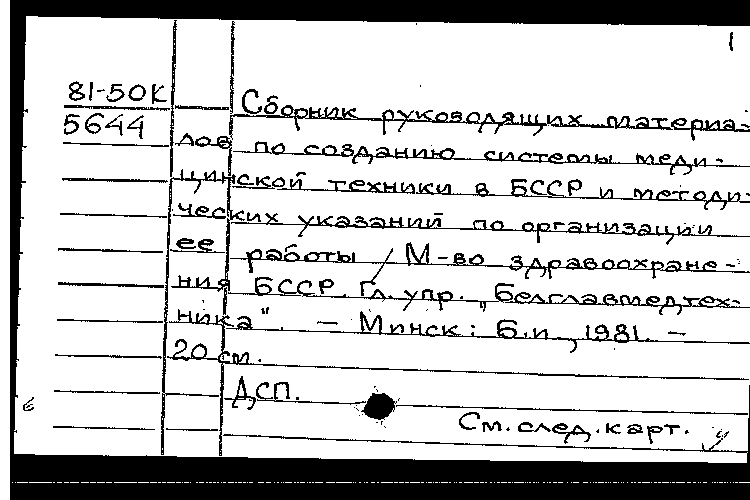 1
81-50К
5644
Сборник руководящих материа-
лов по созданию системы меди-
цинской техники в БССР и методи-
ческих указаний по организации
ее работы / М-во здравоохране-
ния БССР. Гл. упр. „Белглавмедтех-
ника". — Минск : Б.и., 1981. —
20 см.
ДСП.
См. след. карт.